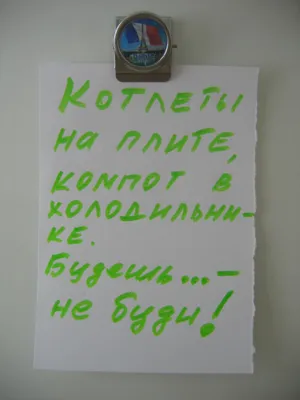 Котлеты
на плите,
компот в
холодильни-
ке.
Будешь...-
не буди!